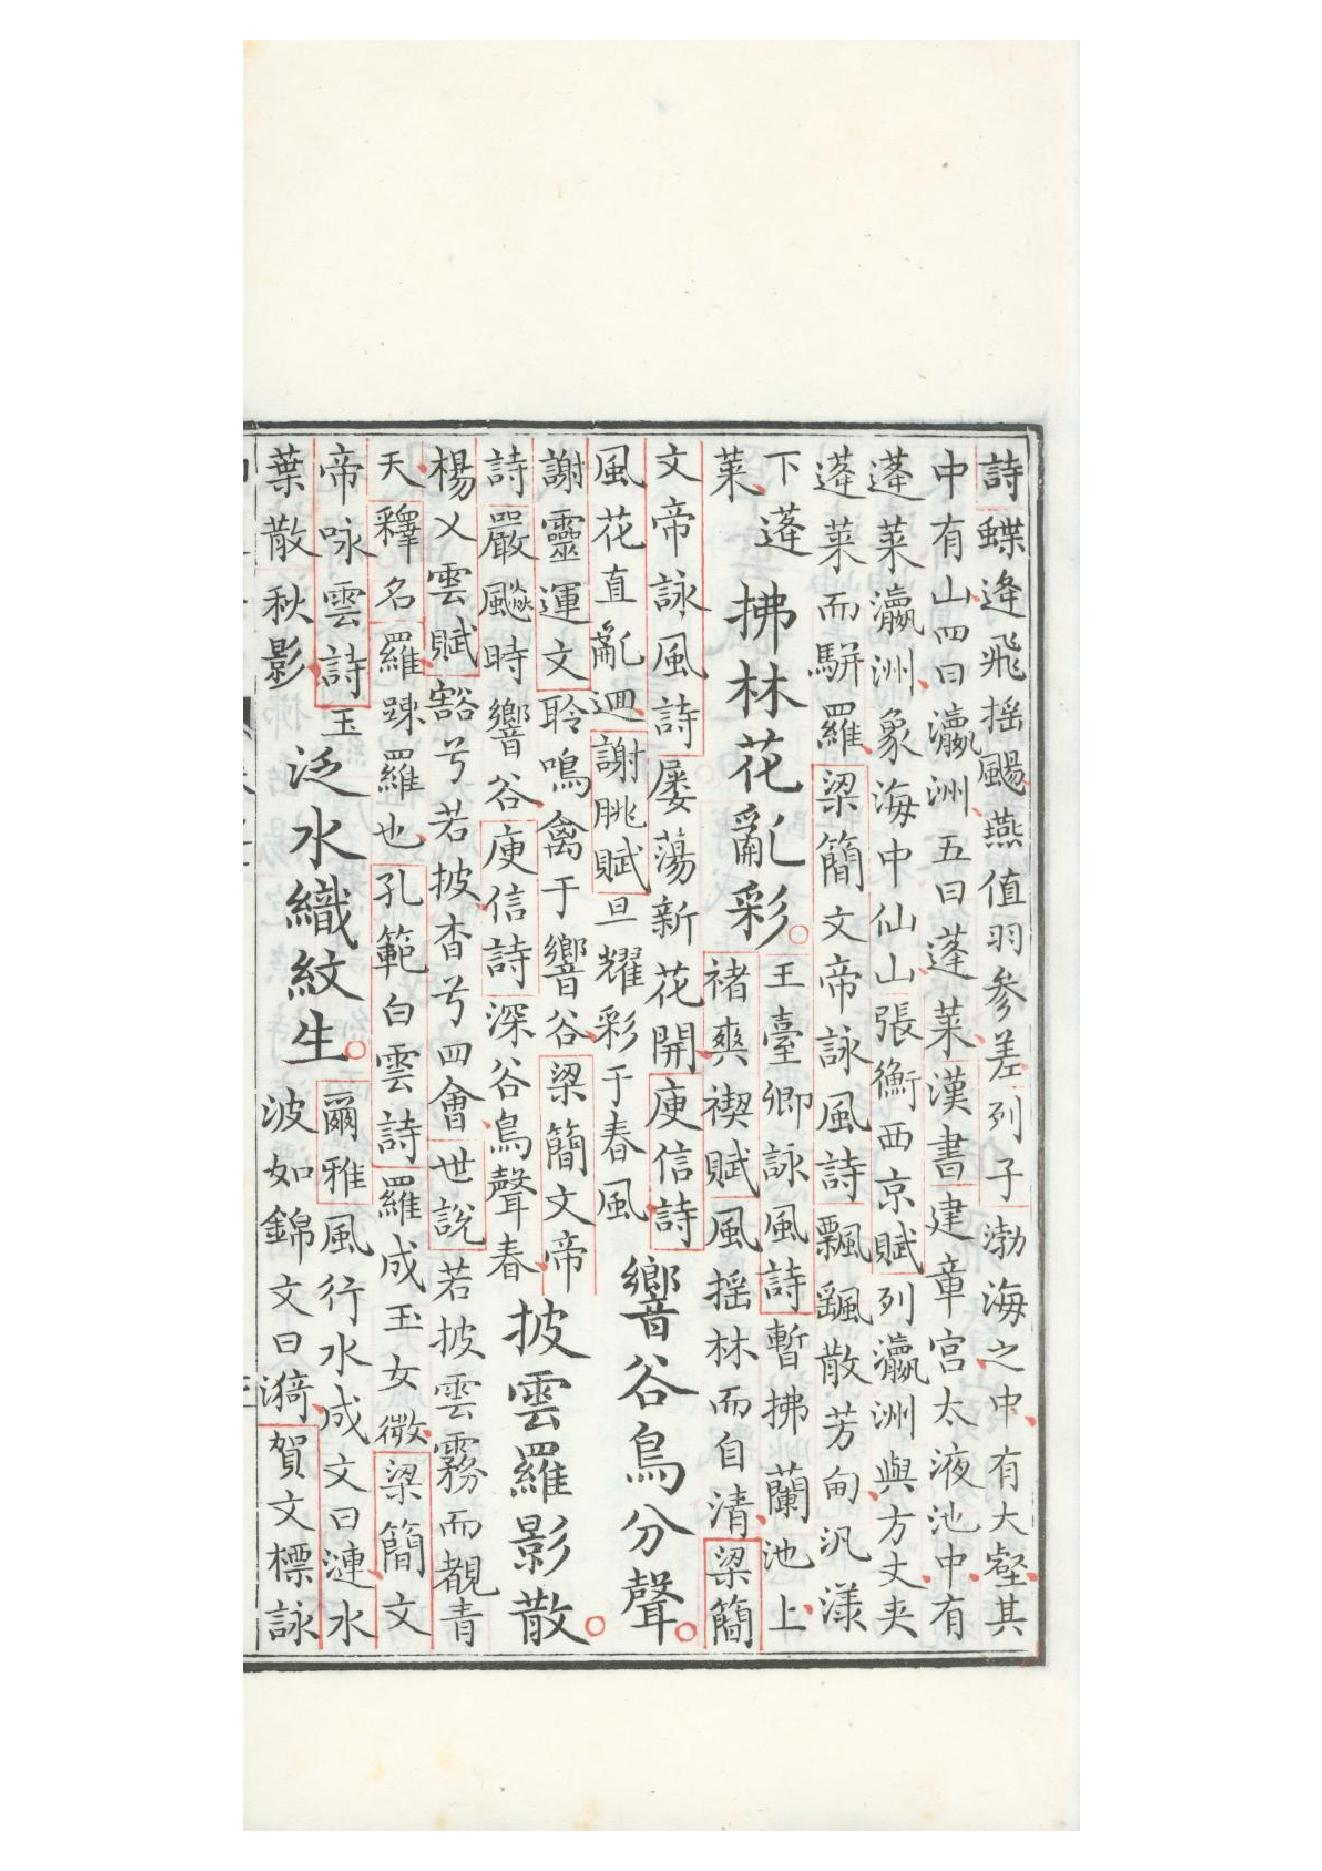 詩蝶逢飛揺颺燕值羽參差列子渤海之中有大壑其
中有山四曰瀛洲五曰蓬萊漢書建章宮太液池中有
蓬萊瀛洲象海中仙山張衡西京賦列瀛洲與方丈夹
蓬萊而駢羅梁簡文帝詠風詩飄颻散芳甸汎漾
下蓬
萊
拂林花亂彩
王臺卿詠風詩暫拂蘭池上
褚爽禊賦風揺林而自清梁簡
文帝詠風詩屡蕩新花開庾信詩
風花直亂迴謝朓賦旦耀彩于春風
響谷鳥分聲
謝靈運文聆鳴禽于響谷梁簡文帝
詩嚴飈時響谷庾信詩深谷鳥聲春
披雲羅影散
楊乂雲賦豁兮若披杳兮四會世説若披雲霧而覩青
天釋名羅踈羅也孔範白雲詩羅成玉女微梁簡文
帝咏雲詩玉
葉散秋影
泛水織紋生
爾雅風行水成文曰漣水
波如錦文曰漪賀文標詠